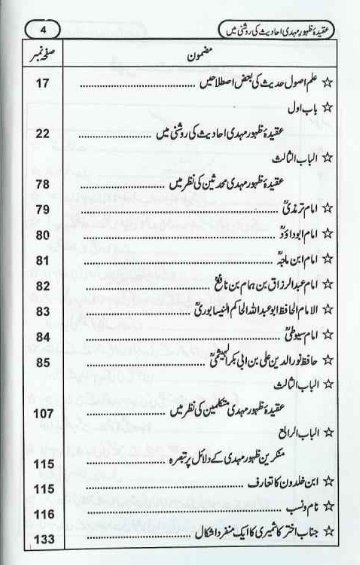 عقیدۂ ظہور مہدی احادیث کی روشنی میں 4
مضمون صفحہ نمبر
☆ علم اصول حدیث کی بعض اصطلاحیں ........ 17
☆ باب اول
عقیدۂ ظہور مہدی احادیث کی روشنی میں ........ 22
☆ الباب الثالث
عقیدۂ ظہور مہدی محدثین کی نظر میں ........ 78
☆ امام ترمذیؒ ........ 79
☆ امام ابوداؤدؒ ........ 80
☆ امام ابن ماجہؒ ........ 81
☆ امام عبدالرزاق بن ہمام بن نافعؒ ........ 82
☆ الامام الحافظ ابو عبداللہ الحاکم النیسابوریؒ ........ 83
☆ امام سیوطیؒ ........ 84
☆ حافظ نورالدین علی بن ابی بکر الہیثمیؒ ........ 85
☆ الباب الثالث
عقیدۂ ظہور مہدی متکلمین کی نظر میں ........ 107
☆ الباب الرابع
منکرین ظہور مہدی کے دلائل پر تبصرہ ........ 115
☆ ابن خلدون کا تعارف ........ 115
☆ نام ونسب ........ 116
☆ جناب اختر کاشمیری کا ایک منفرد اشکال ........ 133